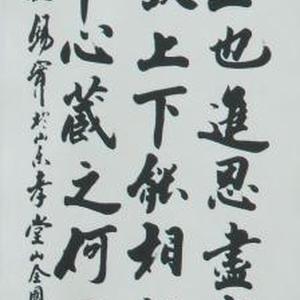 也進思盡
故上下能相
中心藏之何
錫寧於山東孝堂山全國